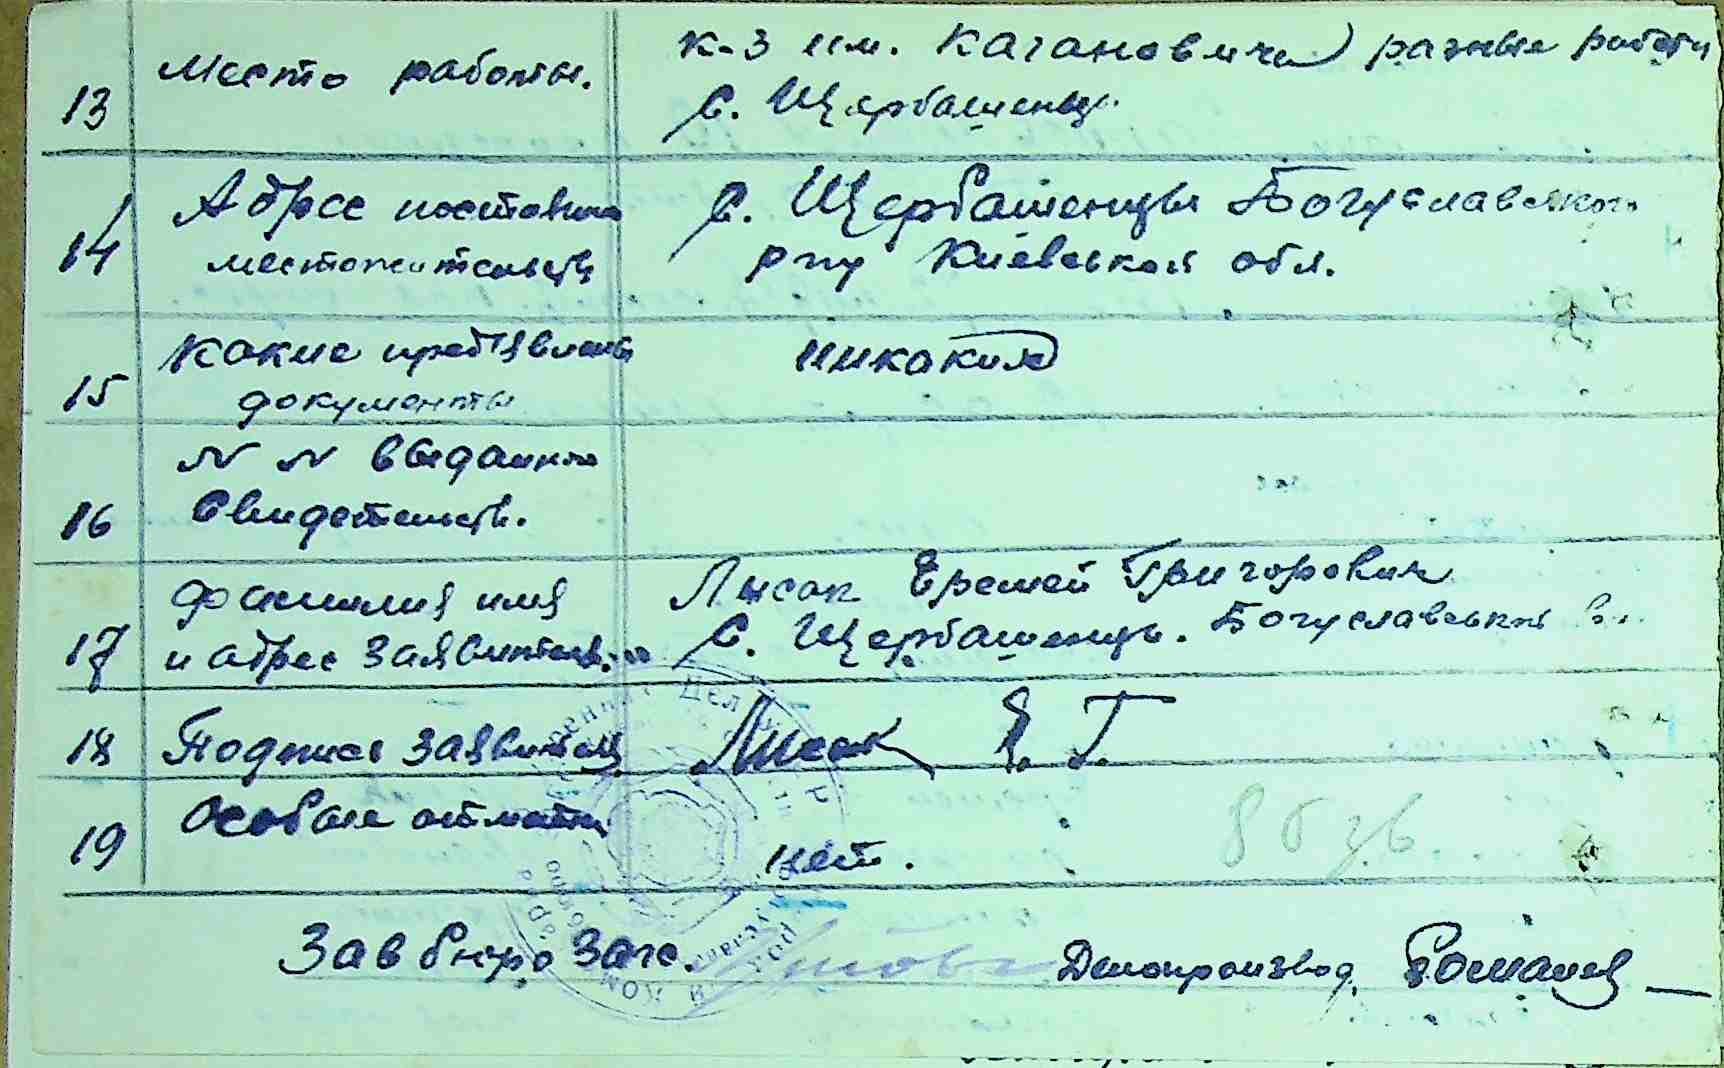 13 Место работы. к-з им. Кагановича разные работы
с. Щербашенцы.
14 Адрес постоян.
местожительств с. Щербашенцы Богуславского
р-ну Киевськой обл.
15 Какие предъявлены
документы никаких
16 N N выданого
Свидетельств.
17 Фамилия имя
и адрес заявителя Лысак Еремей Григорович
с. Щербашенцы. Богуславський
18 Подпись заявителя Лисак Е. Г.
19 Особые отметки нет.
Зав бюро Загс. Делопроизвод. Романец